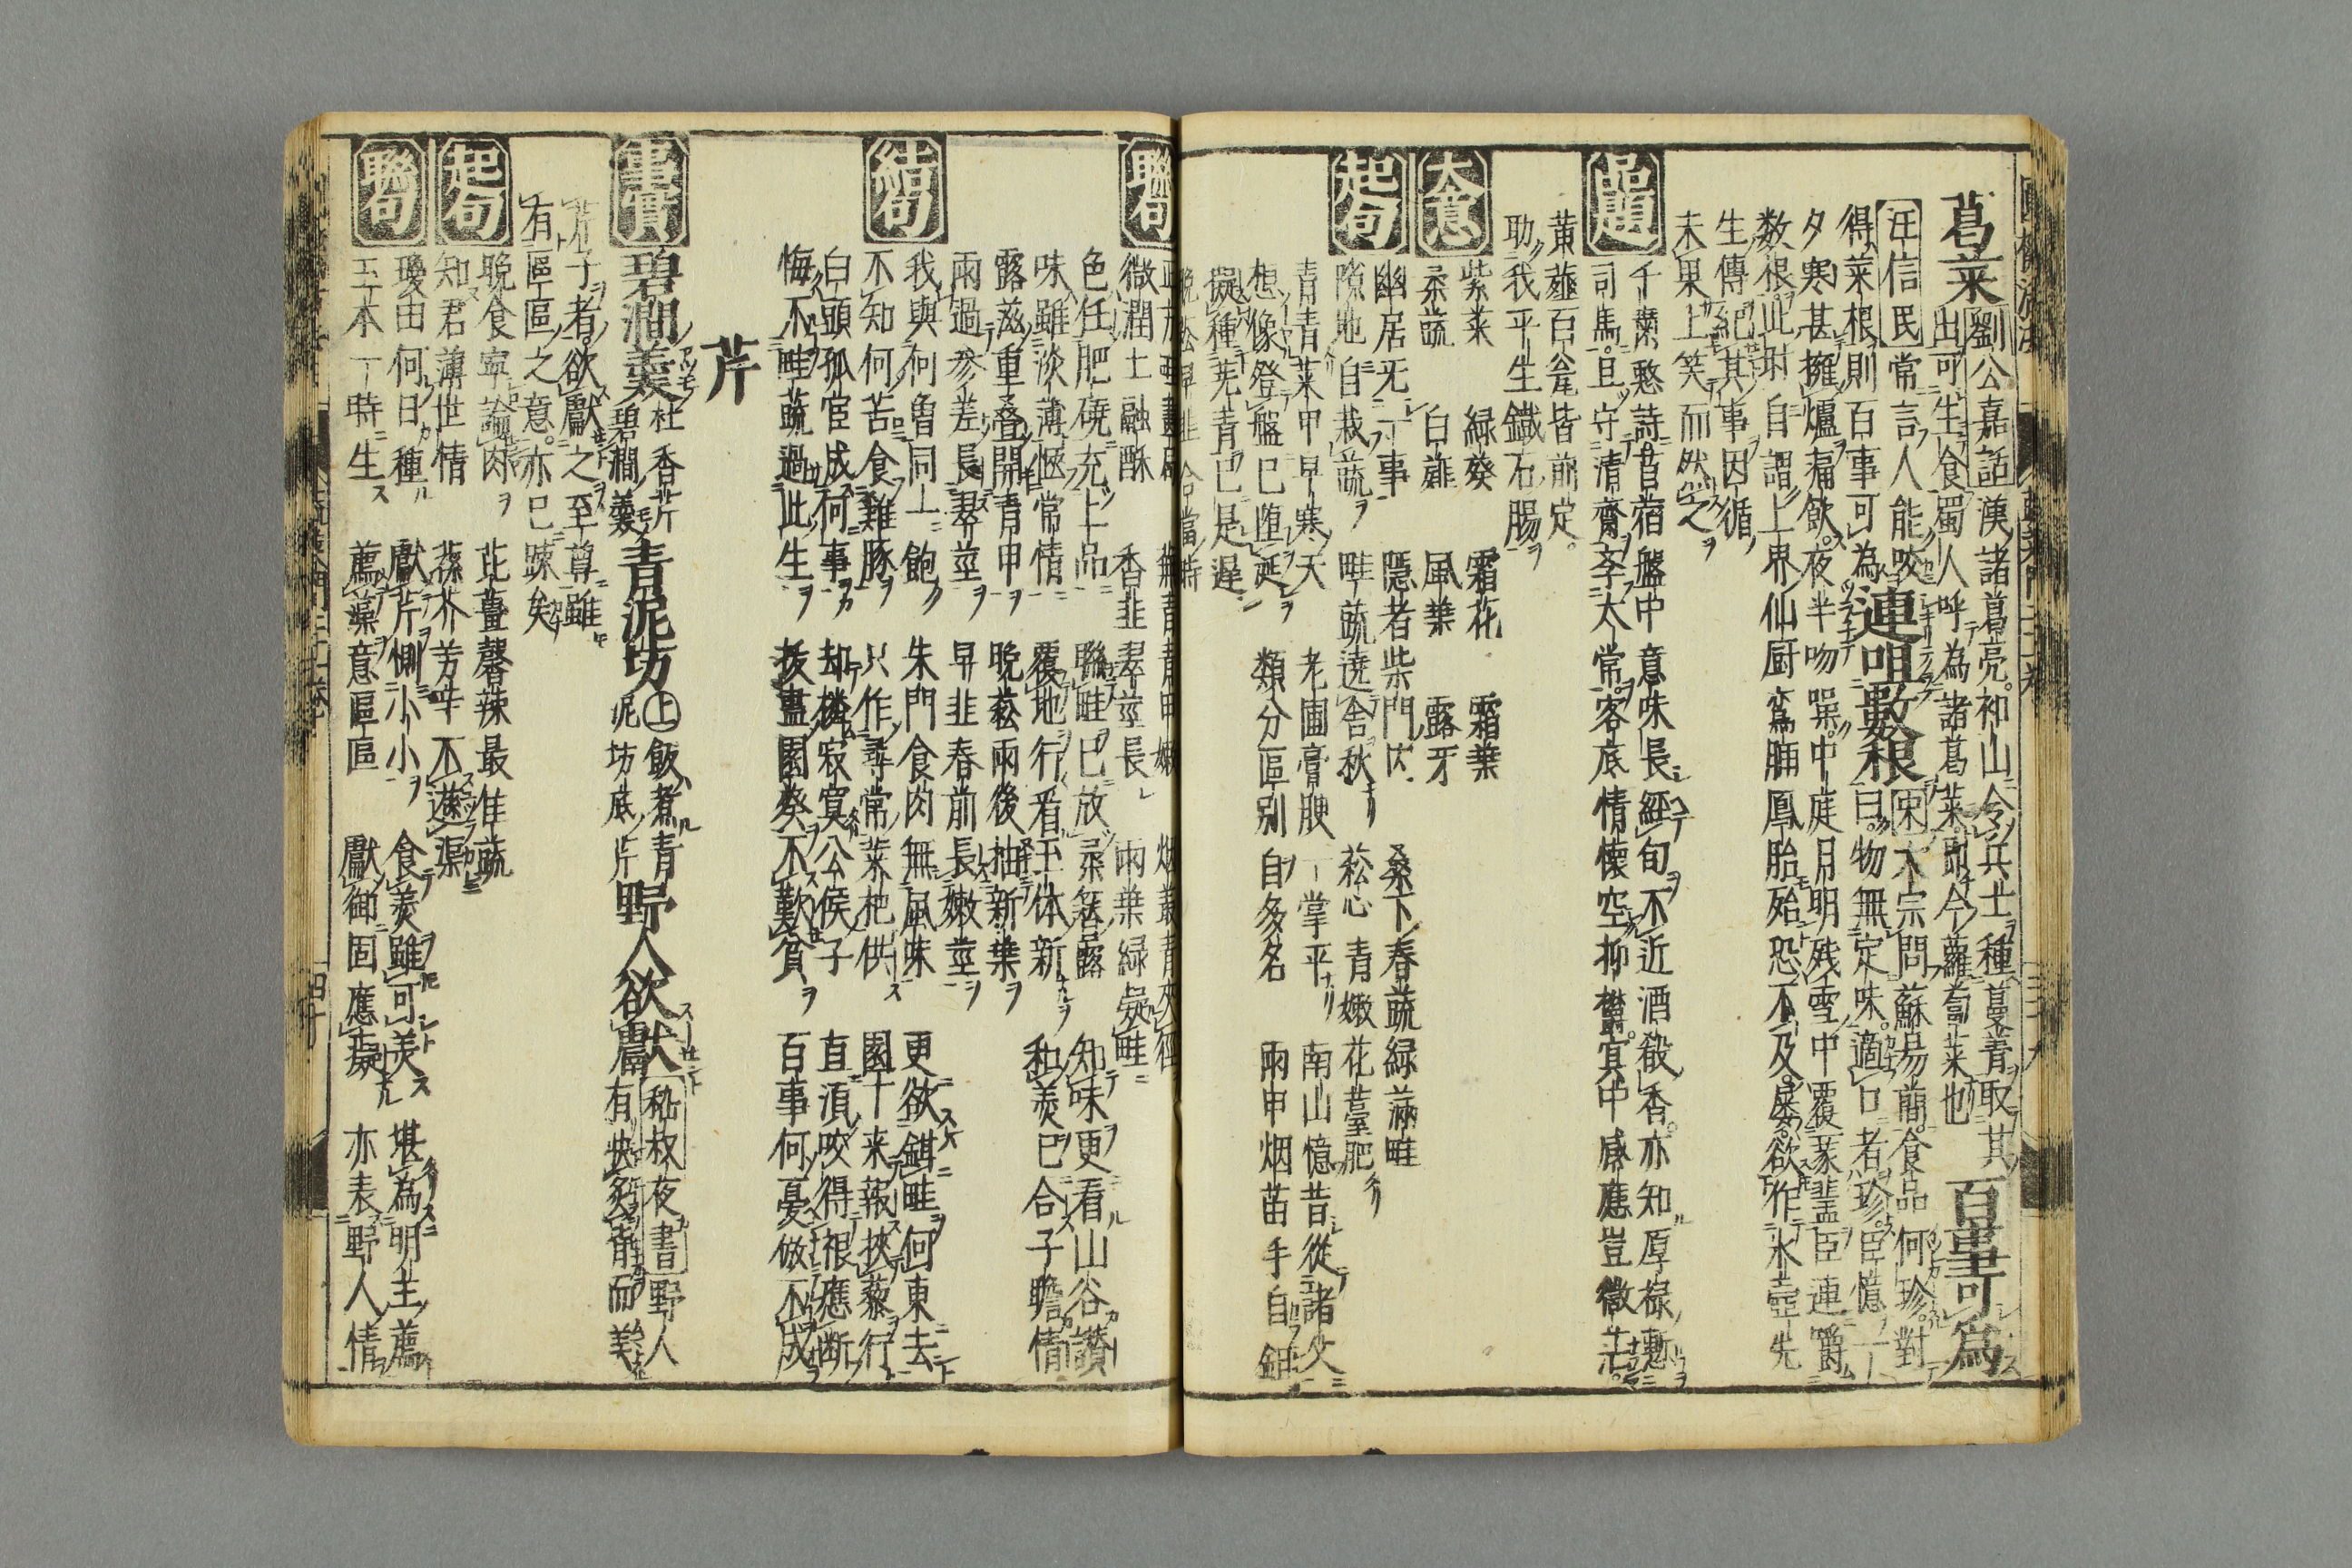 葛菜
劉公嘉話漢諸葛亮。初山令兵士種蔓菁取其
出可生食蜀人呼為諸葛菜。即今蘿蔔菜也
百事可為
汪信民常言人能咬
得菜根則百事可為
連咀數根
宋太宗問蘇易簡。食品何珍。對
曰。物無定味。適口者珍。臣憶一
夕寒甚擁爐痛飲。夜半吻噪。中庭月明残雪中覆
盂連
数根。此時自謂上界仙厨鸞脯鳳胎殆恐不及。屡欲作氷壺先
生傳紀其事因循
未果上笑而然之
品題
千
詩苜蓿盤中意味長經旬不近酒殽香。亦知厚禄慙
司馬。且守清齋
太常。客底情懐空抑欝。冥中感應豈微茫。
黄虀百瓮皆前定。
助我平生鐵石腸
大意
紫菜 緑葵 霜花 霜葉
柔蔬 白薤 風葉 露牙
起句
幽居无一事 隠者柴門
桑下春蔬緑滿畦
隙地自栽蔬 畦蔬遶舎秋 菘心青嫩花薹肥
青青菜甲早寒天 老圃膏腴一掌平 南山憶昔從諸父
想像登盤已堕涎 類分區別自多名 兩甲烟苗手自鉏
擬種芜青已是遲
晩菘早韭合當時
聯句
微潤土融酥 香韭翠莖長 兩葉緑
畦
色任肥磽充上品 聯畦已放柔
露 知味更看山谷讃
味雖淡薄愜常情 覆地行看玉体新 和羮已合子瞻情
露滋重叠開青甲 晩菘兩後抽新葉
雨過參差長翠莖 早韭春前長嫩莖
結句
我與何曽同一飽 朱門食肉無風味 更欲鉏畦何東去
不知何苦食雞豚 只作尋常菜把供 園丁来報挾藜行
白頭孤宦成何事 却
寂寞公侯子 直須咬得根應断
悔不畦蔬過此生 拔盡園葵不歎貧 百事何憂做不成
芹
事實
碧澗羮
杜香芹
碧澗羮
青泥坊
上飯煮青
泥坊底芹
野人欲獻
嵇叔夜書野人
有快炙背而美
芹子者。欲獻之至尊雖
有區區之意。亦已疎矣
起句
晩食寧論肉 芘薑馨辣最佳蔬
知君薄世情 蓀芥芳辛不遜渠
聯句
瓊田何日種 獻芹惻小小 食羮雖可美 堪為明主薦
玉本一時生 薦藻意區區 獻御固應癡 亦表野人情